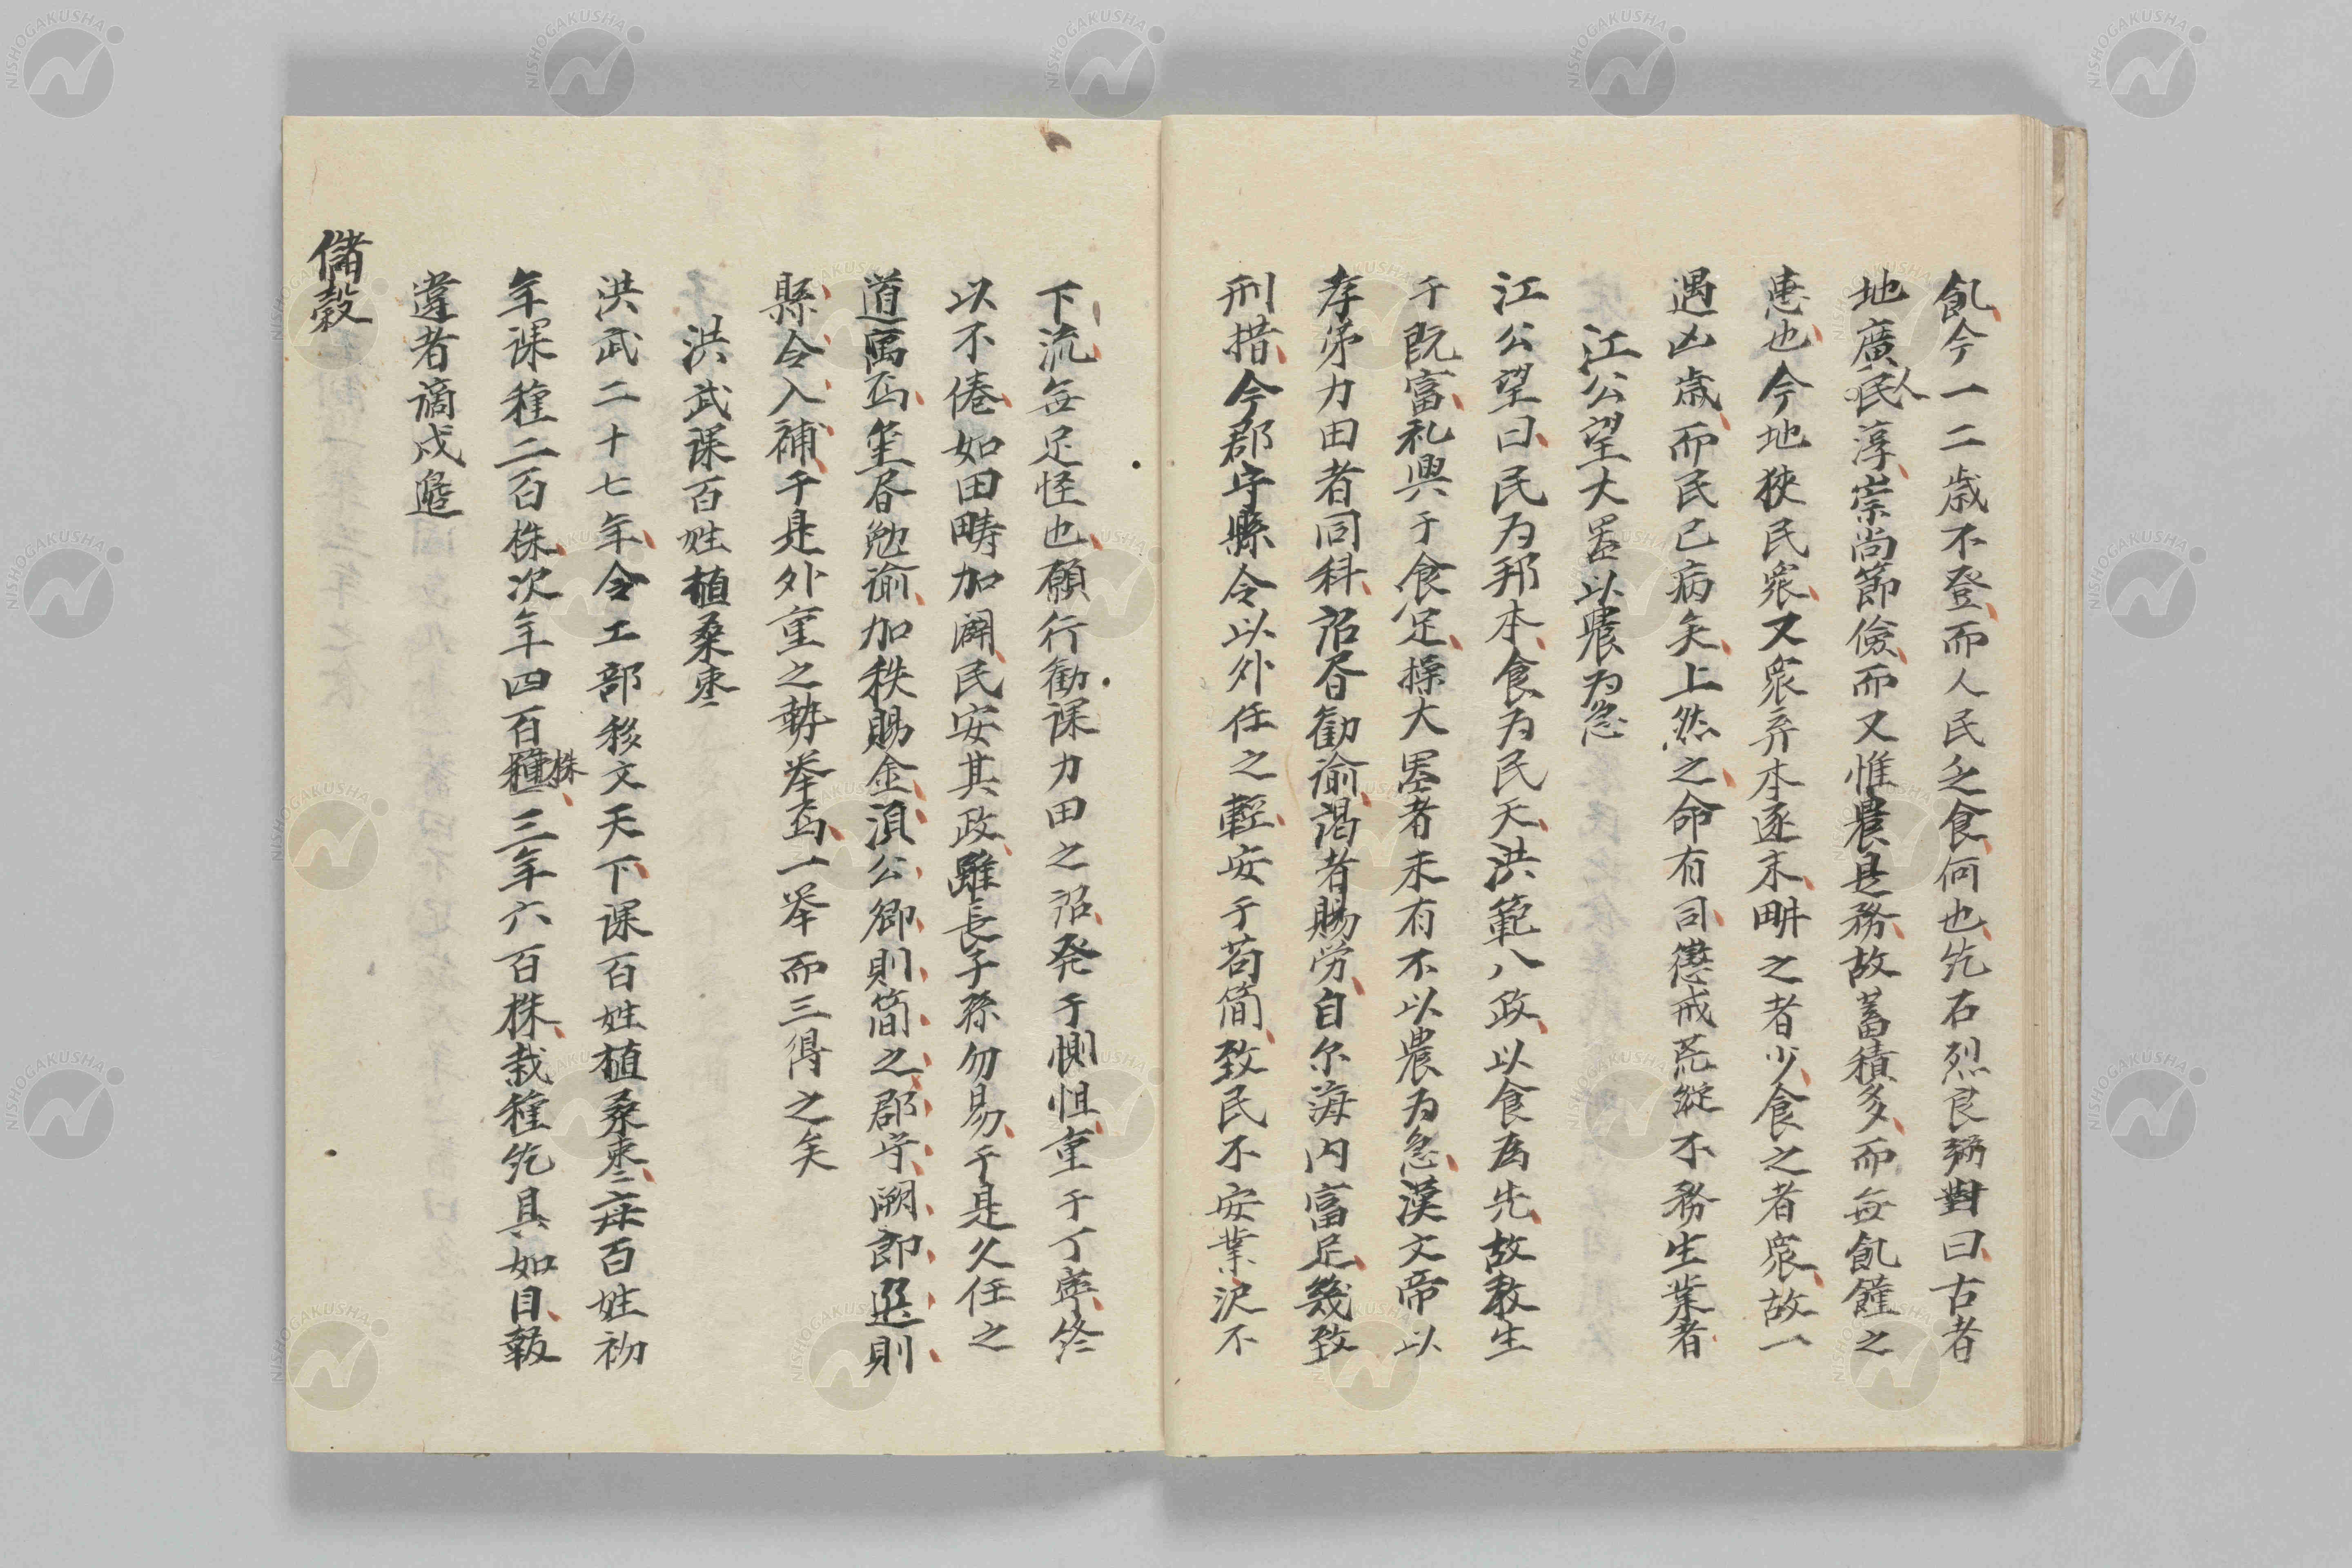 飢今一二歳不登而人民乏食何也紇石烈良弼對曰古者
地廣民人淳崇尚節儉而又惟農是務故蓄積多而每飢饉之
患也今地狹民衆又衆弃本逐末畊之者少食之者衆故一
遇凶歳而民已病矣上然之命有司懲戒荒縦不務生業者
江公望大畧以農为急
江公望曰民为邦本食为民天洪範八政以食為先故教生
于既富礼興于食足操大畧者未有不以農为急漢文帝以
孝弟力田者同科詔書勧諭謁者賜労自尓海内富足幾致
刑措今郡守縣令以外任之輕安于苟簡致民不安業沢不
下流每足怪也願行勧課力田之詔発于惻怛重于丁寧終
以不倦如田疇加闢民安其政雖長子孫勿易于是久任之
道寓焉璽書勉諭加秩賜金湏公卿則簡之郡守闕郎選則
縣令入補于是外重之勢挙焉一挙而三得之矣
洪武課百姓植桑枣
洪武二十七年令工部移文天下課百姓植桑枣每百姓初
年課種二百株次年四百種株三年六百株栽種訖具如目報
違者謫戍邉
儲穀
NISHOGAKUSHA